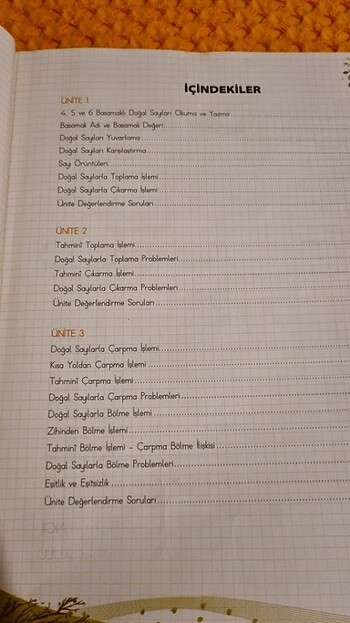 İÇİNDEKİLER
ÜNİTE 1
4, 5 ve 6 Basamaklı Doğal Sayıları Okuma ve Yazma
Basamak Adı ve Basamak Değeri
Doğal Sayıları Yuvarlama
Doğal Sayıları Karşılaştırma
Sayı Örüntüleri
Doğal Sayılarla Toplama İşlemi
Doğal Sayılarla Çıkarma İşlemi
Ünite Değerlendirme Soruları
ÜNİTE 2
Tahminî Toplama İşlemi
Doğal Sayılarla Toplama Problemleri
Tahminî Çıkarma İşlemi
Doğal Sayılarla Çıkarma Problemleri
Ünite Değerlendirme Soruları
ÜNİTE 3
Doğal Sayılarla Çarpma İşlemi
Kısa Yoldan Çarpma İşlemi
Tahminî Çarpma İşlemi
Doğal Sayılarla Çarpma Problemleri
Doğal Sayılarla Bölme İşlemi
Zihinden Bölme İşlemi
Tahminî Bölme İşlemi - Çarpma Bölme İlişkisi
Doğal Sayılarla Bölme Problemleri
Eşitlik ve Eşitsizlik
Ünite Değerlendirme Soruları